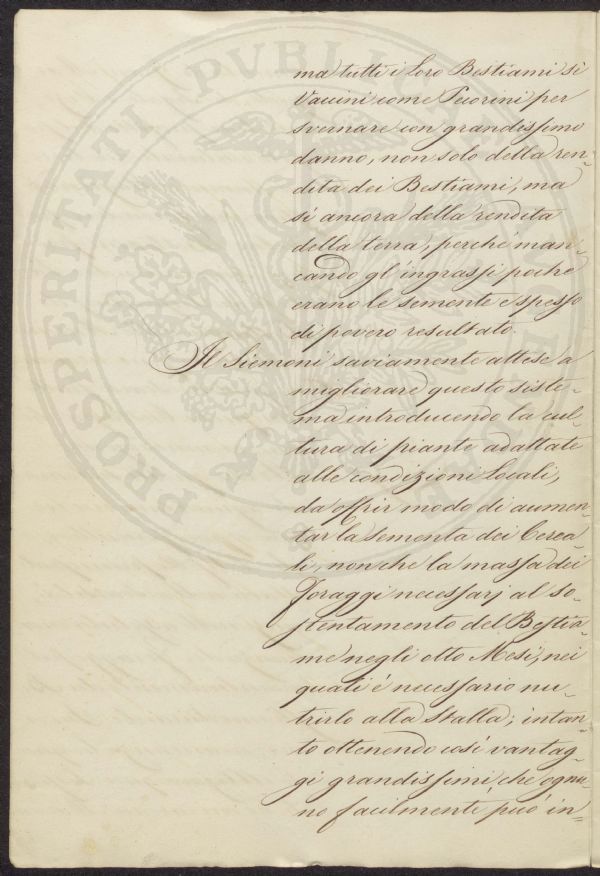 ma tutti i Loro Bestiami sì
Vaccini come Pecorini per
svernare con grandissimo
danno, non solo della ren-
dita dei Bestiami, ma
sì ancora della rendita
della terra, perchè man-
cando gl'ingrassi poche
erano le semente e spesso
di povero resultato.
Il Siemoni saviamente attese a
migliorare questo siste-
ma introducendo la cul-
tura di piante adattate
alle condizioni Locali,
da offrir modo di aumen-
tar la sementa dei Cerea
li, nonche la massa dei
Foraggi necessarj al so-
stentamento del Bestia-
me negli otto Mesi, nei
quali é necessario nu-
trirlo alla stalla; intan-
to ottenendo così vantag-
gi grandissimi, che ognu-
no facilmente può in-
PROSPERITATI PVBLICAE